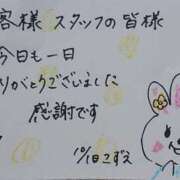 客様 スタッフの皆様
今日も一日
りがとうございました
感謝です
10/18 こずえ